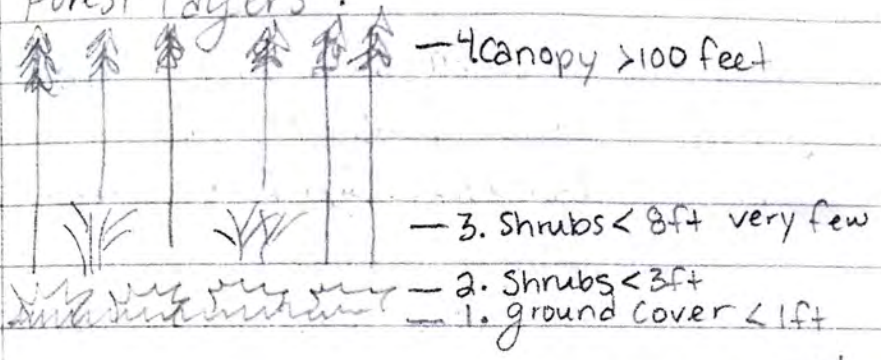 Forest layers:
— 4. Canopy >100 feet
— 3. Shrubs < 8ft very few
— 2. Shrubs <3ft
— 1. ground cover < 1ft